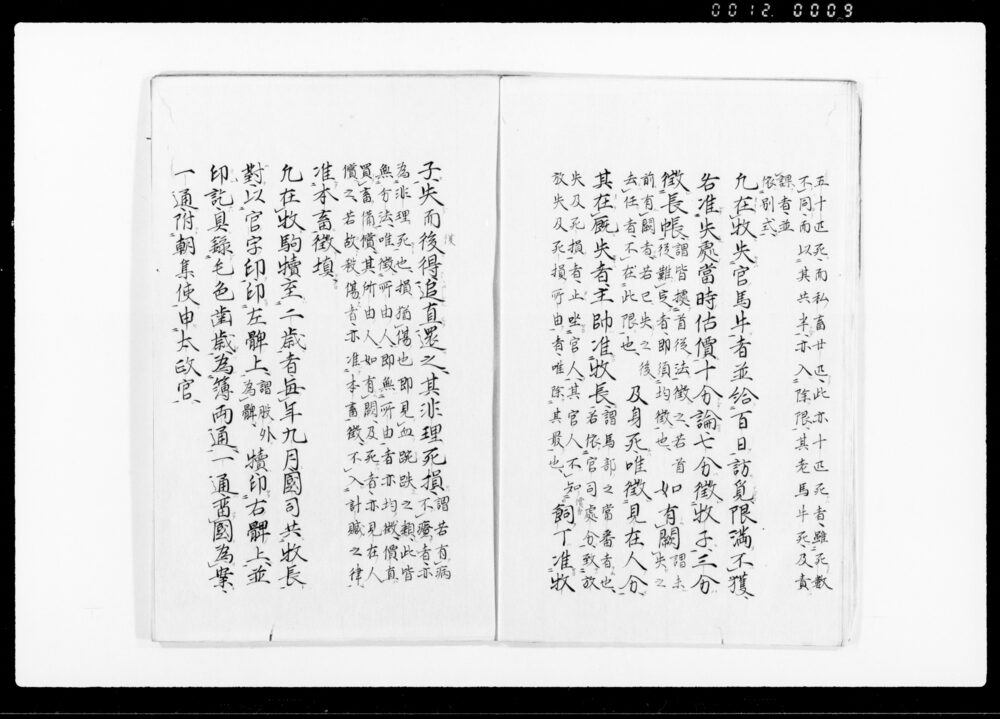 0012 0009
五十匹死、而私畜廿匹、此亦十匹死者、雖死數
不同、而以其共半、亦入除限、其老馬牛死、及責
課者、並
依別式、
凡在牧失官馬牛者、並給百日訪覓、限滿不獲、
各准失處當時估價、十分論、七分徵牧子、三分
徵長帳、謂、皆據首後法徵之、若首
後難定者、即須均徵也、如有闕、謂、未
失之
前有闕者、若已失之後、
去任者、不在此限也、及身死、唯徵見在人分、
其在厩失者、主帥准牧長、謂、馬部之當番者也、
若依官司處分、致放
失及死損者、止坐官人、其官人不知
放失及死損所由者、唯除其最也、飼丁准牧
子、失而後得、追直還之、其非理死損、謂、若有病
不療者、亦
為非理死也、損猶傷也、即見血踠跌之類、此皆
無分法、唯徵所由人、即無所由者、亦均徵償直、
買畜備償、其所由人如有闕及死者、亦見在人
償之、若故殺傷者、亦准本畜徵、不入計贓之律、
准本畜徵填、
凡在牧駒犢、至二歲者、每年九月、國司共牧長
對、以官字印、印左髀上、謂、股外
為髀、犢印右髀上、並
印訖、具錄毛色齒歲、為簿兩通、一通留國為案、
一通附朝集使、申太政官、